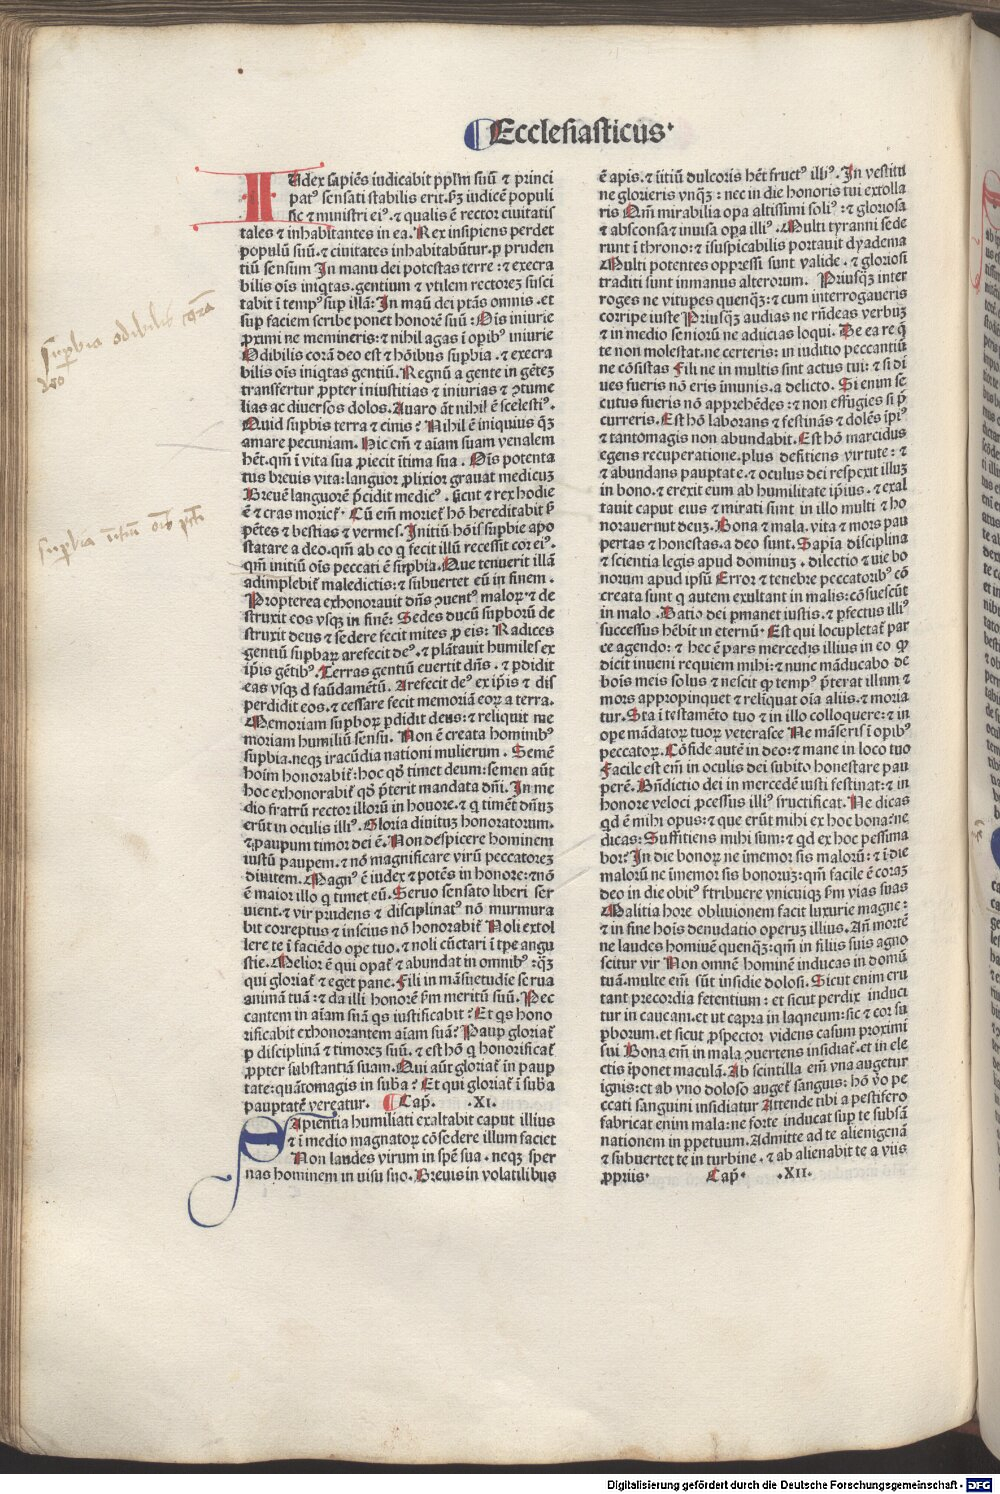 Ecclesiasticus·
IUdex sapiēs iudicabit ppl̄m suū ⁊ princi
patꝰ sensati stabilis erit. s̄ꝫ iudicē populi
sic ⁊ ministri eiꝰ. ⁊ qualis ē rector ciuitatis
tales ⁊ inhabitantes in ea. Rex insipiens perdet
populū suū. ⁊ ciuitates inhabitabūtur. p̱ pruden
tiū sensum In manu dei potestas terre: ⁊ execra
bilis oīs iniq̇tas. gentium ⁊ vtilem rectorēꝫ susci
tabit ī tempꝰ sup̱ illā: In manū dei ptās omnis. et
sup̱ faciem scribe ponet honorē suū: Oīs iniurie
ꝓximi ne memineris: ⁊ nihil agas ī op̱ibꝰ iniurie
Odibilis corā deo est ⁊ hōibus sup̱bia. ⁊ execra
bilis oīs iniq̇tas gentiū. Regnū a gente in gētēꝫ
transfertur ꝓpter iniustitias ⁊ iniurias ⁊ ꝯtume
lias ac diuersos dolos. Auaro āt nihil ē scelestiꝰ.
Quid sup̱bis terra ⁊ cinis? Nihil ē iniquius q̄ꝫ
amare pecuniam. Hic em̄ ⁊ aīam suam venalem
hēt. qm̄ ī vita sua ꝓiecit ītima sua. Oīs potenta
tus breuis vita: languor ꝓlixior grauat medicuꝫ
Breuē languorē p̄cidit medicꝰ. sicut ⁊ rex hodie
ē ⁊ cras moriet᷑. Cū em̄ moriet᷑ hō hereditabit s̄
pētes ⁊ bestias ⁊ vermes. Initiū hōis sup̱bie apo
statare a deo. qm̄ ab eo q̇ fecit illū recessit cor eiꝰ.
qm̄ initiū oīs peccati ē sup̱bia. Que tenuerit illā
adimplebit᷑ maledictis: ⁊ subuertet eū in finem.
Propterea exhonorauit dn̄s ꝯuentꝰ maloꝝ. ⁊ de
struxit eos vsqꝫ in finē: Sedes ducū sup̱borū de
struxit deus ⁊ sedere fecit mites ꝓ eis: Radices
gentiū sup̱baꝝ arefecit deꝰ. ⁊ plātauit humiles ex
ip̄is gētibꝰ. Terras gentiū euertit dn̄s. ⁊ p̱didit
eas vsqꝫ ad fūdamētū. Arefecit deꝰ ex ip̄is ⁊ dis
perdidit eos. ⁊ cessare fecit memoriā eoꝝ a terra.
Memoriam sup̱boꝝ p̱didit deus: ⁊ reliquit me
moriam humiliū sensu. Non ē creata hominibꝰ
sup̱bia. neqꝫ iracūdia nationi mulierum. Semē
hoīm honorabit᷑: hoc qd̄ timet deum: semen aūt
hoc exhonorabit᷑ qd̄ p̄terit mandata dn̄i. In me
dio fratrū rector illorū in honore. ⁊ q̇ timēt dn̄uꝫ
erūt in oculis illiꝰ. Gloria diuituꝫ honoratorum.
⁊ paup̱um timor dei ē. Non despicere hominem
iustū paup̱em. ⁊ nō magnificare virū peccatorēꝫ
diuitem. Magnꝰ ē iudex ⁊ potēs in honore: ⁊ nō
ē maior illo q̇ timet eū. Seruo sensato liberi ser
uient. ⁊ vir prudens ⁊ disciplinatꝰ nō murmura
bit correptus ⁊ inscius nō honorabit᷑ Noli extol
lere te ī faciēdo ope tuo. ⁊ noli cūctari ī tp̄e angu
stie. Melior ē qui opat᷑ ⁊ abundat in omnibꝰ: q̄ꝫ
qui gloriat᷑ ⁊ eget pane. Fili in māsuetudie serua
animā tuā: ⁊ da illi honorē s̄m meritū suū. Pec
cantem in aīam suā q̇s iustificabit? Et q̇s hono
rificabit exhonorantem aīam suā? Paup̱ gloriat᷑
p̱ disciplinā ⁊ timorēꝫ suū. ⁊ est hō q̇ honorificat᷑
ꝓpter substantiā suam. Qui aūt gloriat᷑ in paup̱
tate: quātomagis in suba? Et qui gloriat᷑ ī suba
paup̱tatē vereatur. Cap̄. ·XI.
SApientia humiliati exaltabit caput illius
⁊ ī medio magnatoꝝ cōsedere illum faciet
Non laudes virum in spē sua. neqꝫ sper
nas hominem in uisu suo. Breuis in volatilibus
ē apis. ⁊ ītitiū dulcoris hēt fructꝰ illiꝰ. In vestitu
ne glorieris vnq̄ꝫ: nec in die honoris tui extolla
ris Qm̄ mirabilia op̱a altissimi soliꝰ: ⁊ gloriosa
⁊ absconsa ⁊ inuisa op̱a illiꝰ. Multi tyranni sede
runt ī throno: ⁊ īsuspicabilis portauit dyadema
Multi potentes oppressi sunt valide. ⁊ gloriosi
traditi sunt inmanus alterorum. Priusq̄ꝫ inter
roges ne vitupes quenq̄ꝫ: ⁊ cum interrogaueris
corripe iuste Priusq̄ꝫ audias ne rn̄deas verbuꝫ
⁊ in medio seniorū ne adicias loqui. De ea re q̄
te non molestat. ne certeris: in iuditio peccantiū
ne cōsistas Fili ne in multis sint actus tui: ⁊ si di
ues fueris nō eris imunis. a delicto. Si enim se
cutus fueris nō apprehēdes: ⁊ non effugies si p̄
curreris. Est hō laborans ⁊ festinās ⁊ dolēs īpiꝰ
⁊ tantomagis non abundabit. Est hō marcidus
egens recuperatione. plus deficiens virtute: ⁊
⁊ abundans paup̱tate. ⁊ oculus dei respexit illuꝫ
in bono. ⁊ erexit eum ab humilitate ip̄ius. ⁊ exal
tauit caput eius ⁊ mirati sunt in illo multi ⁊ ho
norauernut deuꝫ. Bona ⁊ mala. vita ⁊ mors pau
pertas ⁊ honestas. a deo sunt. Sapīa disciplina
⁊ scientia legis apud dominuꝫ. dilectio ⁊ uie bo
norum apud ipsū Error ⁊ tenebre peccatoribꝰ cō
creata sunt q̇ autem exultant in malis: cōsuescūt
in malo. Datio dei p̱manet iustis. ⁊ ꝓfectus illiꝰ
successus hēbit in eternū. Est qui locupletat᷑ par
ce agendo: ⁊ hec ē pars mercedis illius in eo ꝙ
dicit inueni requiem mihi: ⁊ nunc māducabo de
bois meis solus ⁊ nescit ꝙ tempꝰ p̄terat illum ⁊
mors appropinquet ⁊ reliquat oīa aliis. ⁊ moria
tur. Sta ī testamēto tuo ⁊ in illo colloquere: ⁊ in
ope mādatoꝝ tuoꝝ veterasce Ne māseris ī op̱ibꝰ
peccatoꝝ. Cōfide autē in deo: ⁊ mane in loco tuo
Facile est em̄ in oculis dei subito honestare pau
perē. Bn̄dictio dei in mercedē iusti festinat: ⁊ in
honore veloci ꝓcessus illiꝰ fructificat. Ne dicas
qd̄ ē mihi opus: ⁊ que erūt mihi ex hoc bona? ne
dicas: Suffitiens mihi sum: ⁊ qd̄ ex hoc pessima
bor? In die bonoꝝ ne īmemor sis malorū: ⁊ ī die
malorū ne īmemor sis bonoruꝫ: qm̄ facile ē coraꝫ
deo in die obitꝰ r̄tribuere vnicuiqꝫ s̄m vias suas
Malitia hore obliuionem facit luxurie magne:
⁊ in fine hois denudatio operuꝫ illius. An̄ mortē
ne laudes homiuē quenq̄ꝫ: qm̄ in filiis suis agno
scitur vir Non omnē hominē inducas in domū
tuā. multe em̄ sūt insidie dolosi. Sicut enim eru
tant precordia fetentium: et sicut perdix induci
tur in caueam. et ut capra in laqneum: sic ⁊ cor su
p̱borum. et sicut ꝓspector videns casum proximi
sui Bona em̄ in mala ꝯuertens insidiat᷑. et in ele
ctis īponet maculā. Ab scintilla em̄ vna augetur
ignis: et ab vno doloso auget᷑ sanguis: hō v̄o pe
ccati sanguini insidiatur Attende tibi a pestifero
fabricat enim mala: ne forte inducat sup̱ te subsā
nationem in p̱petuum. Admitte ad te alienigenā
⁊ subuertet te in turbine. ⁊ ab alienabit te a viis
ꝓpriis. Cap̄. ·XII.
sup̱bia odibilis corā
deo
sup̱bia initiū ōīs pcti
Digitalisierung gefördert durch die Deutsche Forschungsgemeinschaft - DFG